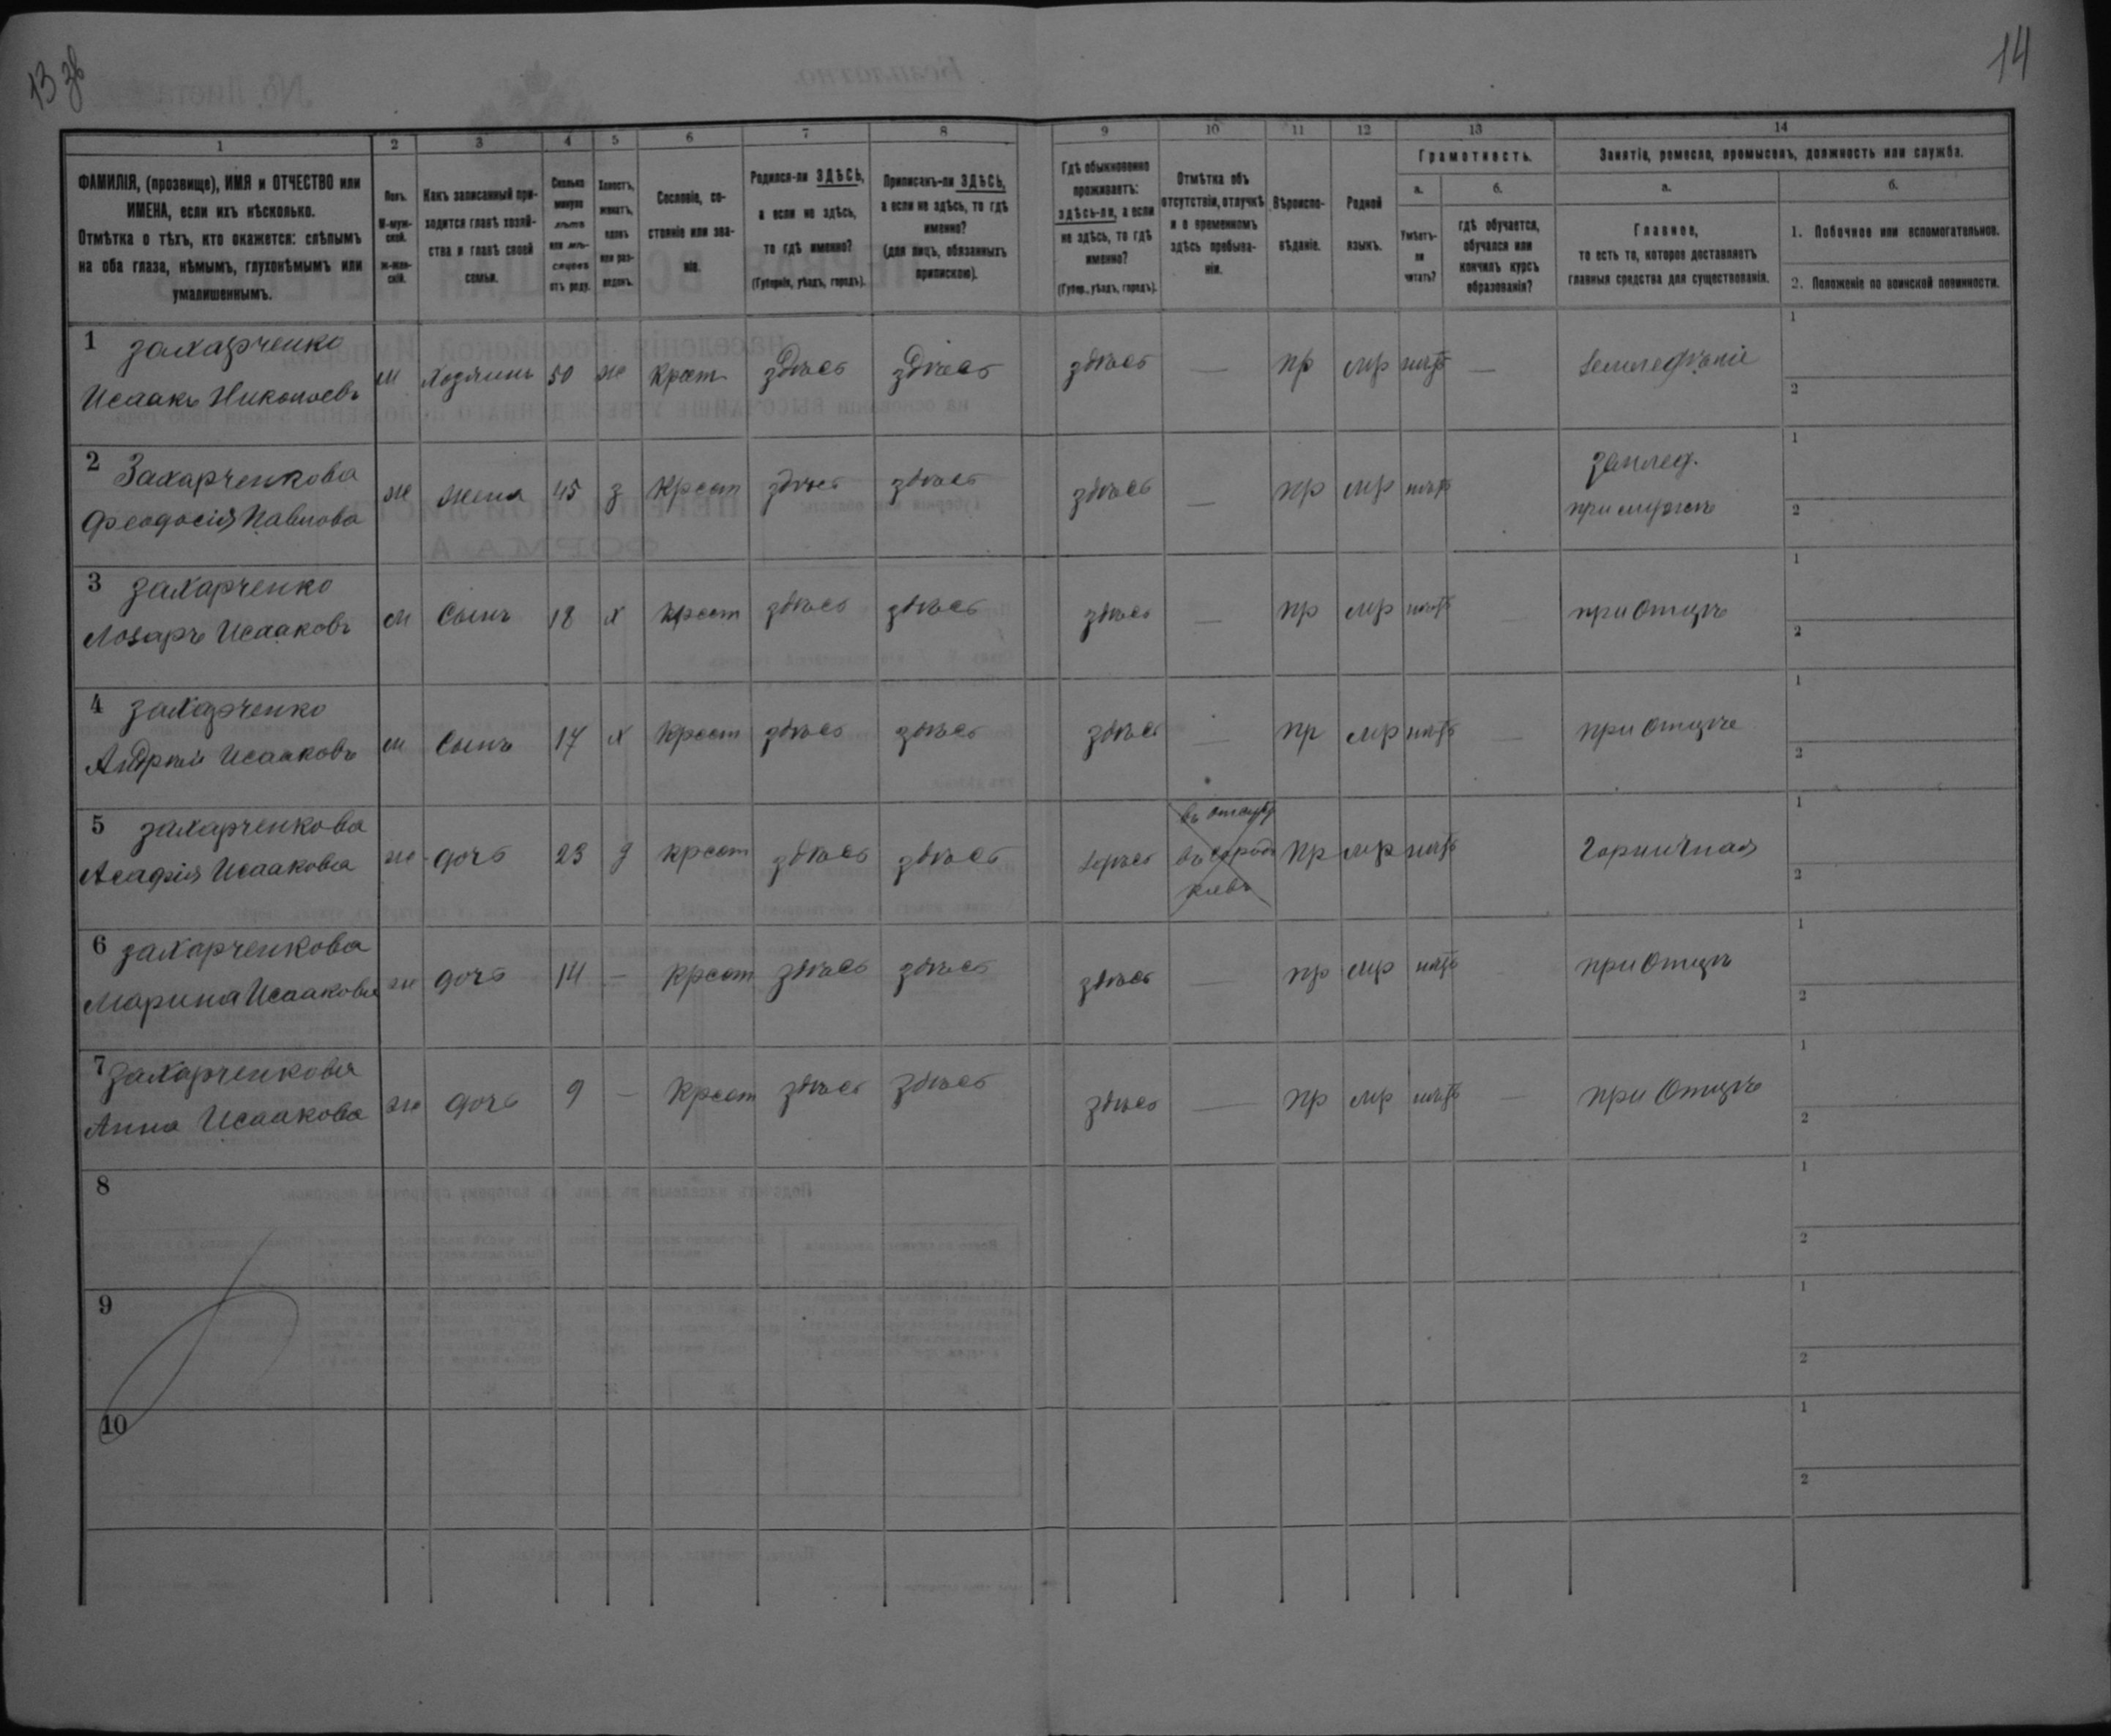 13 зв
14
1
2
3
4
5
6
7
8
9
10
11
12
13
14
ФАМИЛІЯ, (прозвище), ИМЯ и ОТЧЕСТВО или
ИМЕНА, если ихъ нѣсколько.
Отмѣтка о тѣхъ, кто окажется: слѣпымъ
на оба глаза, нѣмымъ, глухонѣмымъ или
умалишеннымъ.
Полъ.
М-муж-
ской.
ж-жен-
скій.
Какъ записанный при-
ходится главѣ хозяй-
ства и главѣ своей
семьи.
Сколько
минуло
лѣтъ
или мѣ-
сяцевъ
отъ роду.
Холостъ,
женатъ,
вдовъ
или раз-
веденъ.
Сословіе, со-
стояніе или зва-
ніе.
Родился-ли ЗДѢСЬ,
а если не здѣсь,
то гдѣ именно?
(Губернія, уѣздъ, городъ).
Приписанъ-ли ЗДѢСЬ,
а если не здѣсь, то гдѣ
именно?
(для лицъ, обязанныхъ
припискою).
Гдѣ обыкновенно
проживаетъ:
здѣсь-ли, а если
не здѣсь, то гдѣ
именно?
(Губер., уѣздъ, городъ).
Отмѣтка объ
отсутствіи, отлучкѣ
и о временномъ
здѣсь пребыва-
ніи.
Вѣроиспо-
вѣданіе.
Родной
языкъ.
Грамотность.
а.
Умѣетъ-
ли
читать?
б.
гдѣ обучается,
обучался или
кончилъ курсъ
образованія?
Занятіе, ремесло, промыселъ, должность или служба.
а.
Главное,
то есть то, которое доставляетъ
главныя средства для существованія.
б.
1. Побочное или вспомогательное.
2. Положеніе по воинской повинности.
1 Захарченко
Исаакъ Николаевъ
м Хозяинъ 50 ж Крест здѣсь здѣсь здѣсь — пр мр нѣтъ — Земледѣліе
1
2
2 Захарченкова
Феодосія Павлова
ж жена 45 з Крест здѣсь здѣсь здѣсь — пр мр нѣтъ
землед.
при мужѣ
1
2
3 Захарченко
Лозарь Исааковъ
м Сынъ 18 х Крест здѣсь здѣсь здѣсь — пр мр нѣтъ — при Отцѣ
1
2
4 Захарченко
Андрей Исааковъ
м Сынъ 17 х Крест здѣсь здѣсь здѣсь — пр мр нѣтъ — при Отцѣ
1
2
5 Захарченкова
Агафія Исаакова
ж дочь 23 д крест здѣсь здѣсь здѣсь
въ
въ городѣ
Кіевъ
пр мр нѣтъ Горничная
1
2
6 Захарченкова
Марина Исаакова
ж дочь 14 — Крест здѣсь здѣсь здѣсь — пр мр нѣтъ при Отцѣ
1
2
7 Захарченкова
Анна Исаакова
ж дочь 9 — Крест здѣсь здѣсь здѣсь — пр мр нѣтъ — при Отцѣ
1
2
8
1
2
9
1
2
10
1
2